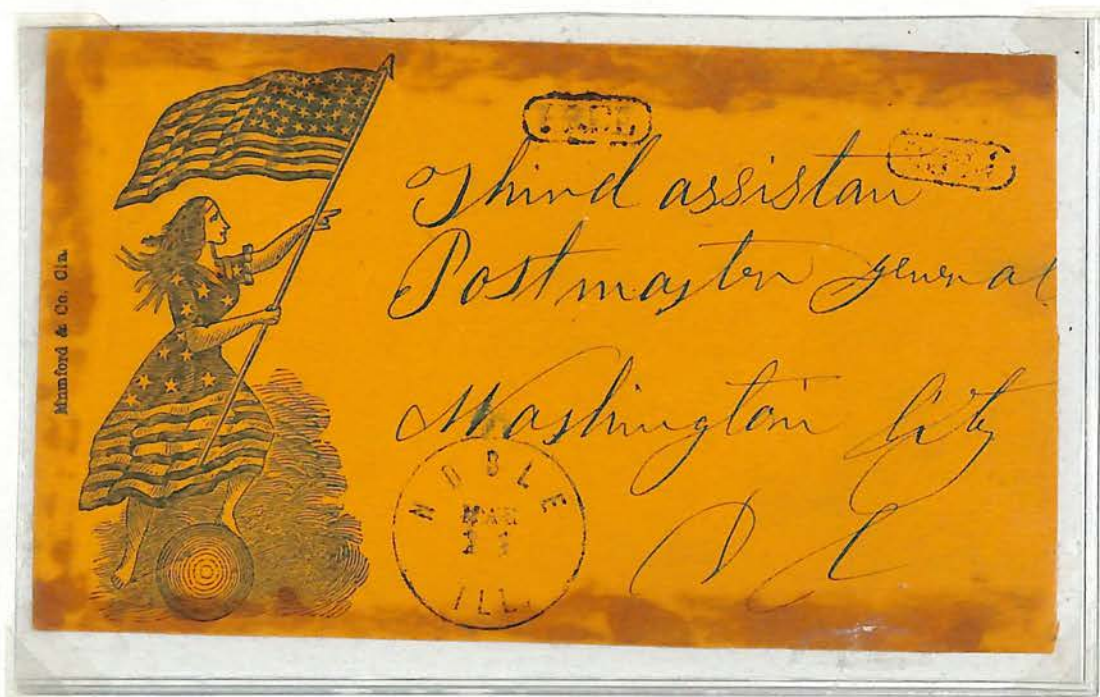 Mumford & Co. Cin.
FREE
Third assistan
Postmaster general
Washington City
D C
NOBLE
MAR
ILL.